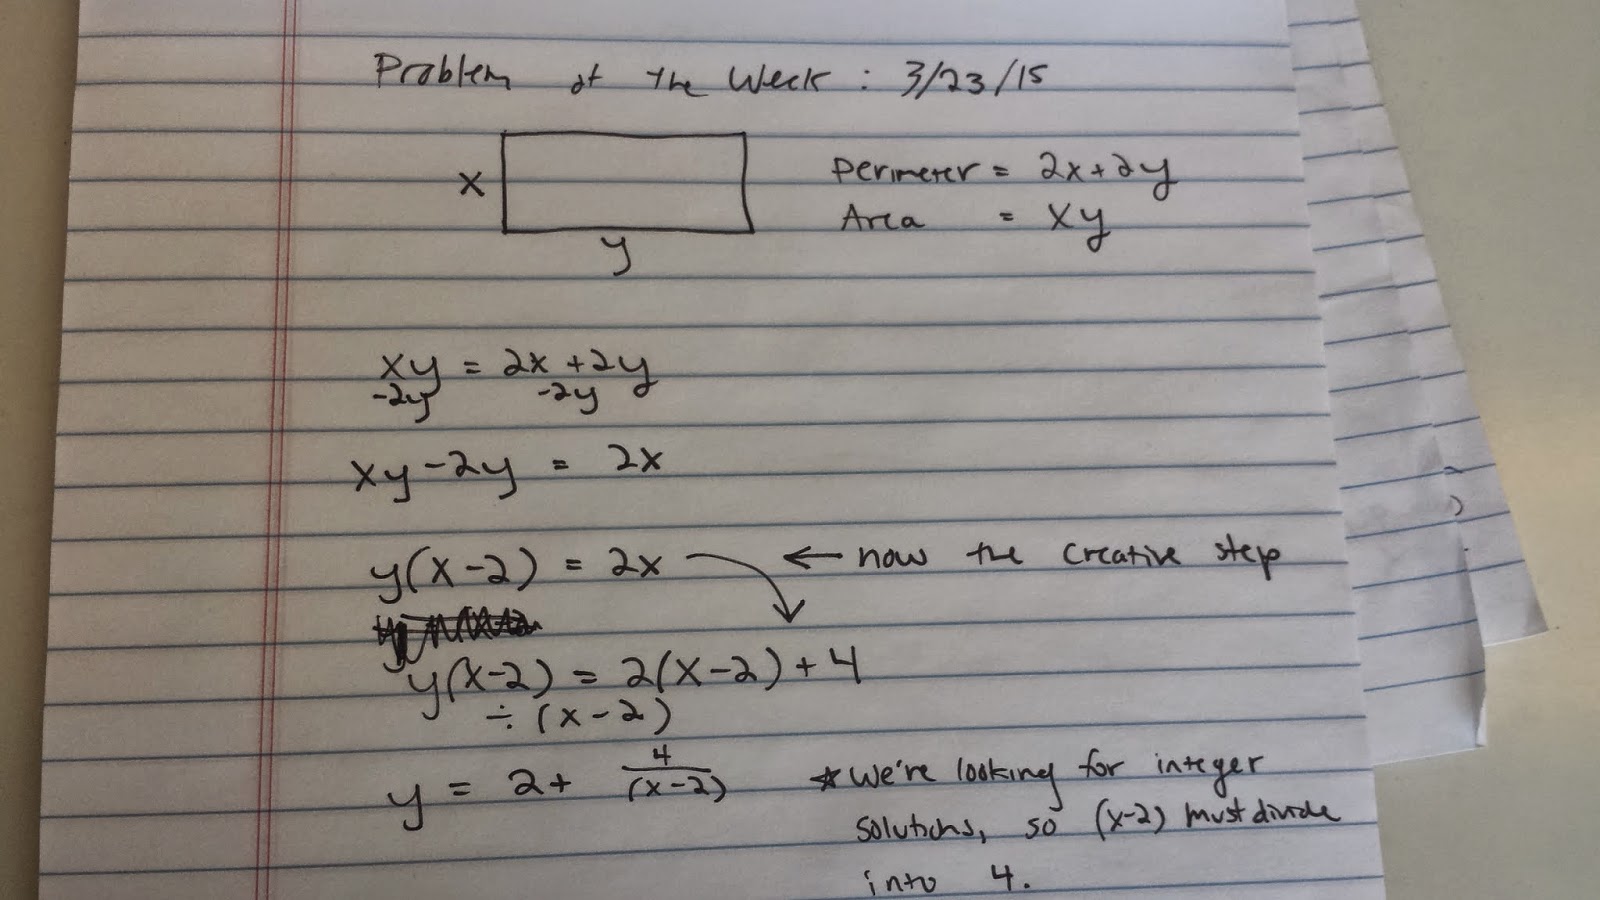 Problem of the Week: 3/23/15
Perimeter = 2x+2y
x
Area = xy
y
xy = 2x+2y
-2y -2y
xy-2y = 2x
y(x-2) = 2x ← now the creative step
y(x-2) = 2(x-2)+4
÷(x-2)
y = 2+ 4/(x-2) * We're looking for integer
solutions, so (x-2) must divide
into 4.